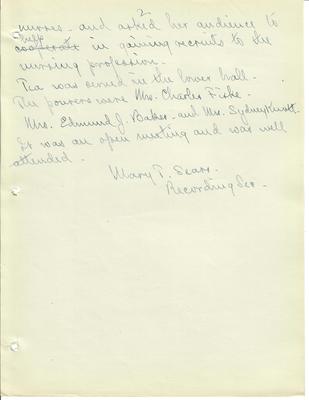 2
nurses - and asked her audience to
help
cooperate in gaining recruits to the
nursing profession.
Tea was served in the lower hall.
The pourers were Mrs. Charles Fiske
Mrs. Edmund J. Baker - and Mrs. Sydney
It was an open meeting and was well
attended.
Mary T. Sears
Recording Sec.